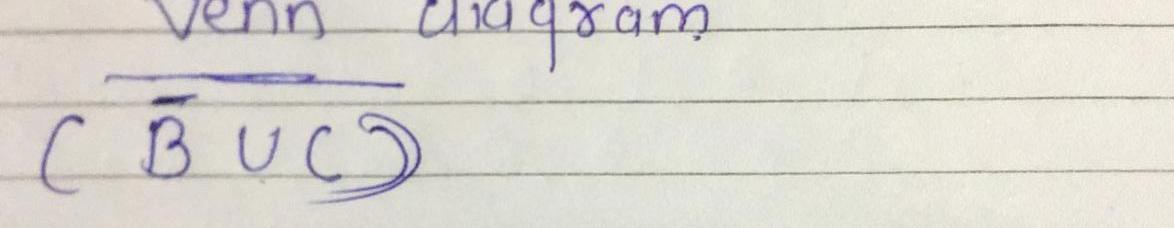 Venn diagram
$\overline{(\bar{B} \cup C)}$